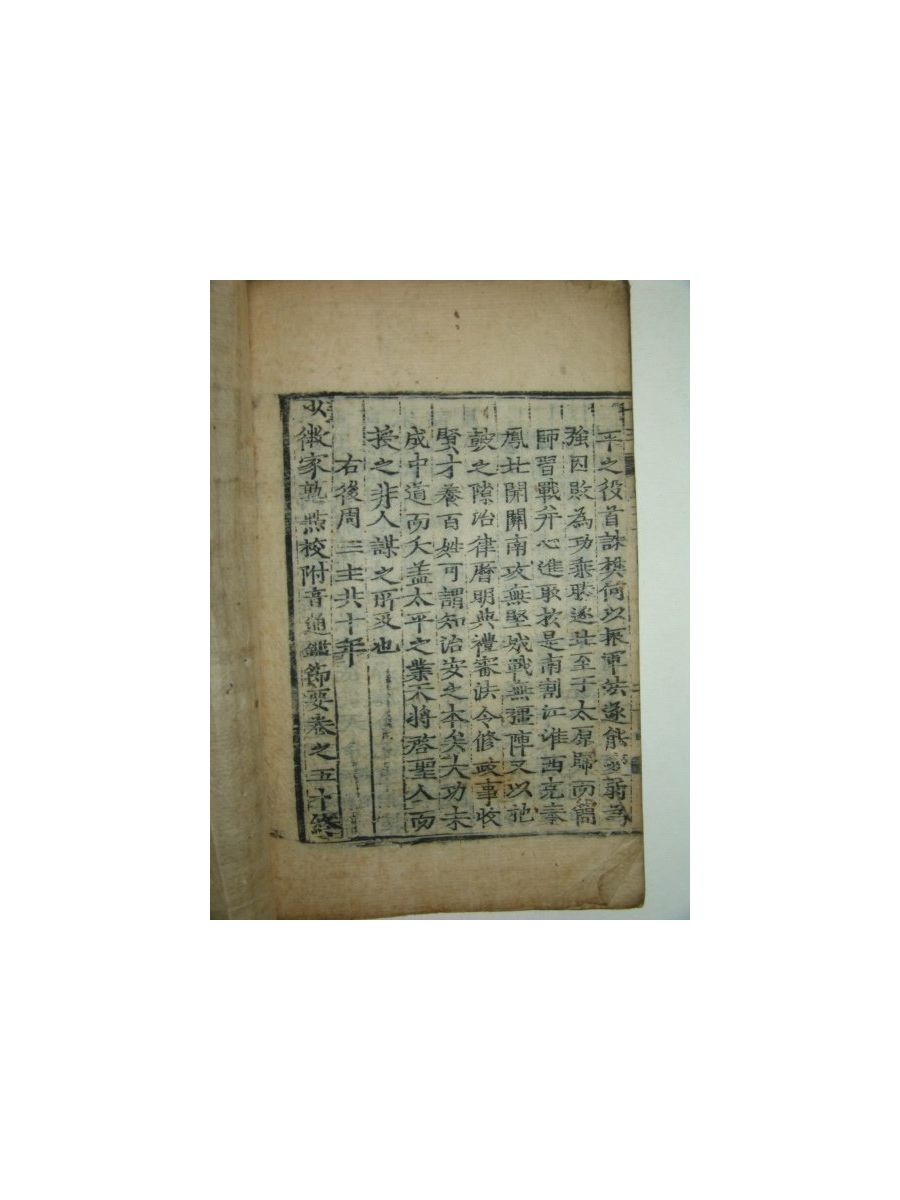 平之役首誅樊何以振軍法遂能變弱為
強因敗為功乘勝逐北至于太原歸而簡
師習戰并心進取於是南割江淮西克秦
鳳北開關南攻無堅城戰無彊陣又以兵
鼓之隙治律曆明典禮審法令修政事收
賢才養百姓可謂知治安之本矣大功未
成中道而夭盖太平之業天將啓聖人而
授之非人謀之所及也
右後周三主共十年
少微家塾㸃校附音通鑑節要卷之五十終